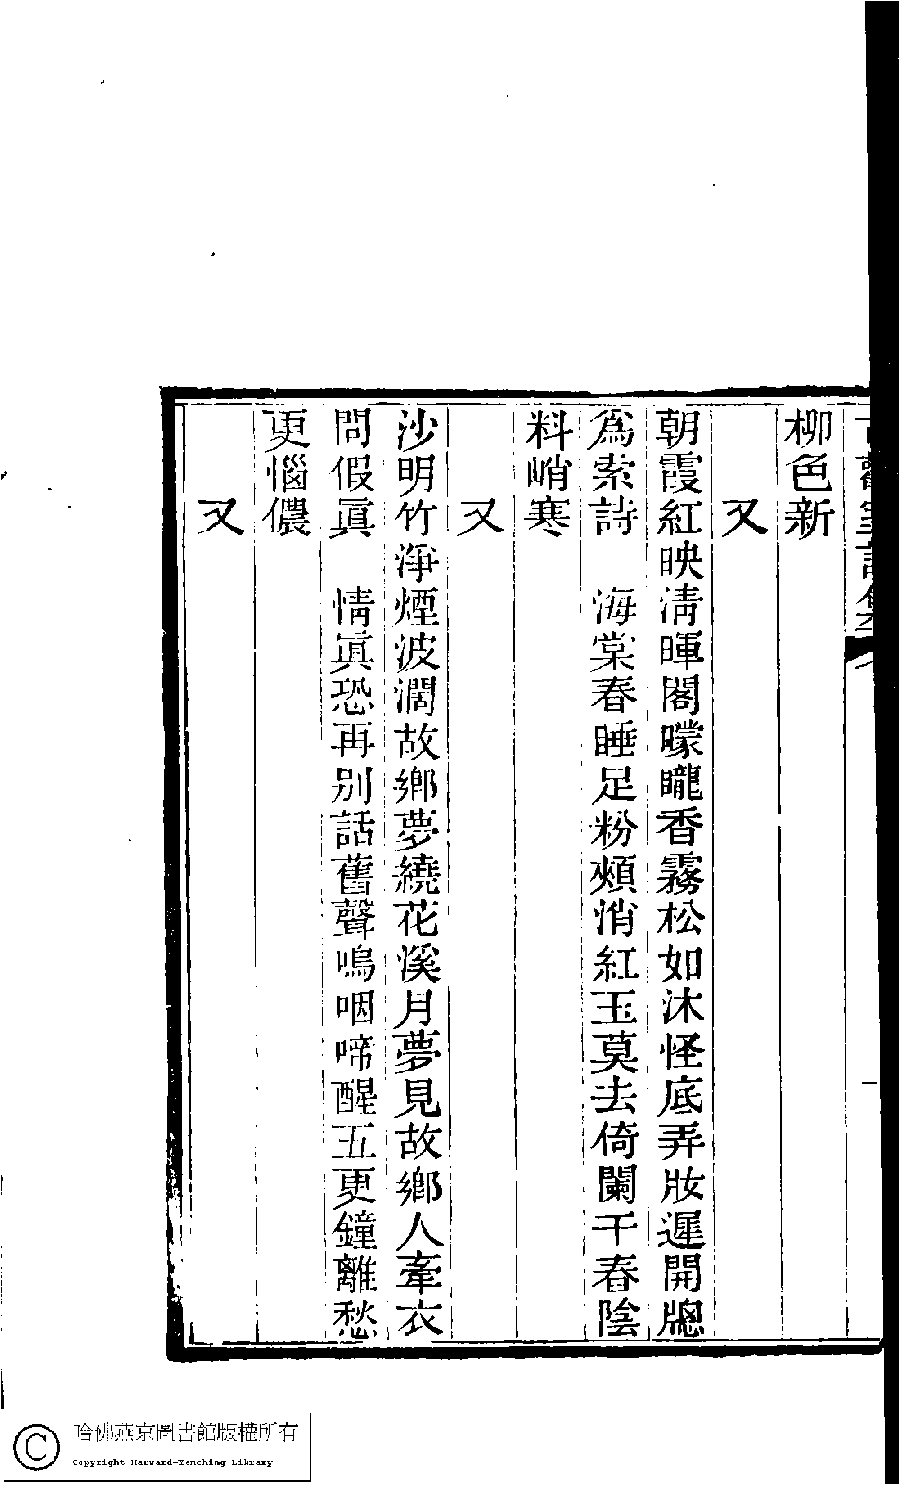 柳色新
又
朝霞紅映清暉閣曚曨香霧松如沐怪底弄妝遲開牕
爲索詩　海棠春睡足粉頰悄紅玉莫去倚闌干春陰
料峭寒
又
沙明竹淨煙波濶故鄉夢繞花溪月夢見故鄉人牽衣
問假眞　情眞恐再別話舊聲嗚咽啼醒五更鐘離愁
更惱儂
又
哈佛燕京圖書館版權所有
Copyright Harvard-Yenching Library